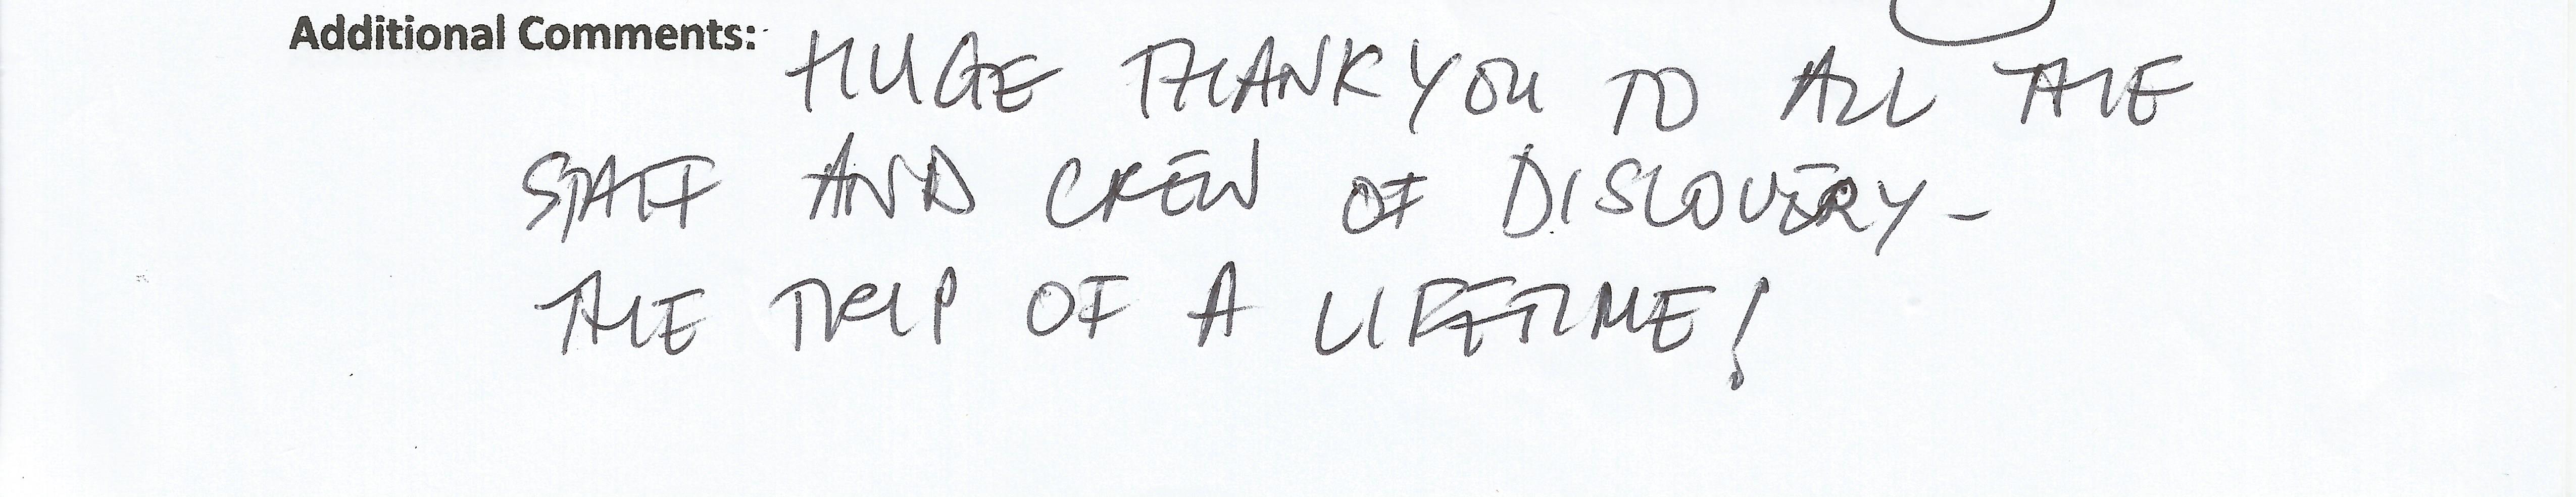 Additional Comments: HUGE THANK YOU TO ALL THE
STAFF AND CREW OF DISCOVERY -
THE TRIP OF A LIFETIME!